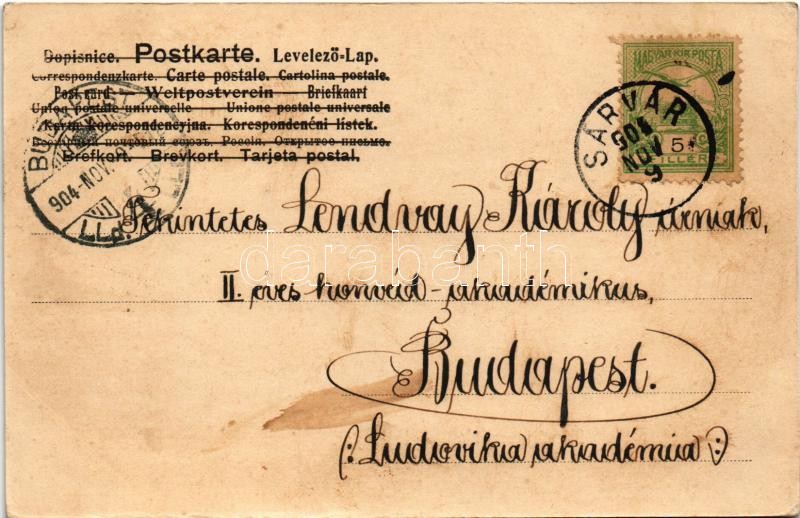 Dopisnice. Postkarte. Levelező-Lap.
Correspondenzkarte. Carte postale. Cartolina postale.
Post card. — Weltpostverein — Briefkaart
Union postale universelle — Unione postale universale
Karta korespondencyjna. Korespondenční lístek.
Всемірный почтовый союзъ. Россія. Открытое письмо.
Brefkort. Brevkort. Tarjeta postal.
MAGYAR KIR. POSTA
5
FILLÉR
SÁRVÁR
904
NOV
9
BUDAPEST
904-NOV.
Tekintetes Lendvay Károly úrnak,
II. éves honvéd-akadémikus,
Budapest.
(: Ludovika akadémia :)
darabanth